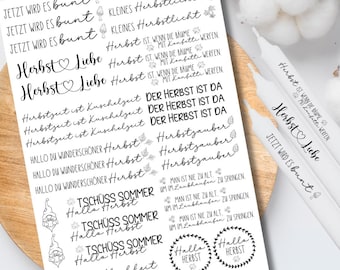 JETZT WIRD ES bunt
JETZT WIRD ES bunt
JETZT WIRD ES bunt
Herbst Liebe
Herbst Liebe
Herbstzeit ist Kuschelzeit
Herbstzeit ist Kuschelzeit
Herbstzeit ist Kuschelzeit
HALLO DU WUNDERSCHÖNER Herbst
HALLO DU WUNDERSCHÖNER Herbst
HALLO DU WUNDERSCHÖNER Herbst
TSCHÜSS SOMMER
Hallo Herbst
TSCHÜSS SOMMER
Hallo Herbst
TSCHÜSS SOMMER
Hallo Herbst
KLEINES Herbstlicht
KLEINES Herbstlicht
Herbst IST, WENN DIE BÄUME
MIT Konfetti WERFEN
Herbst IST, WENN DIE BÄUME
MIT Konfetti WERFEN
Herbst IST, WENN DIE BÄUME
MIT Konfetti WERFEN
DER HERBST IST DA
DER HERBST IST DA
DER HERBST IST DA
Herbstzauber
Herbstzauber
Herbstzauber
MAN IST NIE ZU ALT,
UM IM Laubhaufen ZU SPRINGEN
MAN IST NIE ZU ALT,
UM IM Laubhaufen ZU SPRINGEN
Hallo
HERBST
Hallo
HERBST
Herbst IST, WENN DIE BÄUME
MIT Konfetti WERFEN
Herbst Liebe
JETZT WIRD ES bunt